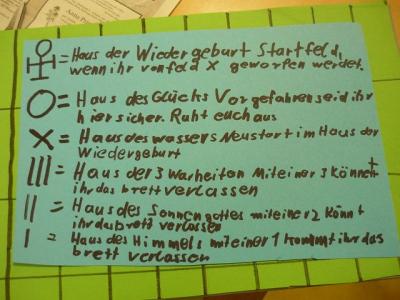 = Haus der Wiedergeburt Startfeld,
wenn ihr von feld X geworfen werdet.
O = Haus des Glücks Vorgefahren seid ihr
hier sicher. Ruht euch aus
X = Haus des wassers Neustart im Haus der
Wiedergeburt
III = Haus der 3 Warheiten Mit einer 3 könnt
ihr das brett verlassen
II = Haus des Sonnengottes mit einer 2 könnt
ihr das brett verlassen
I = Haus des Himmels mit einer 1 kommt ihr das
brett verlassen